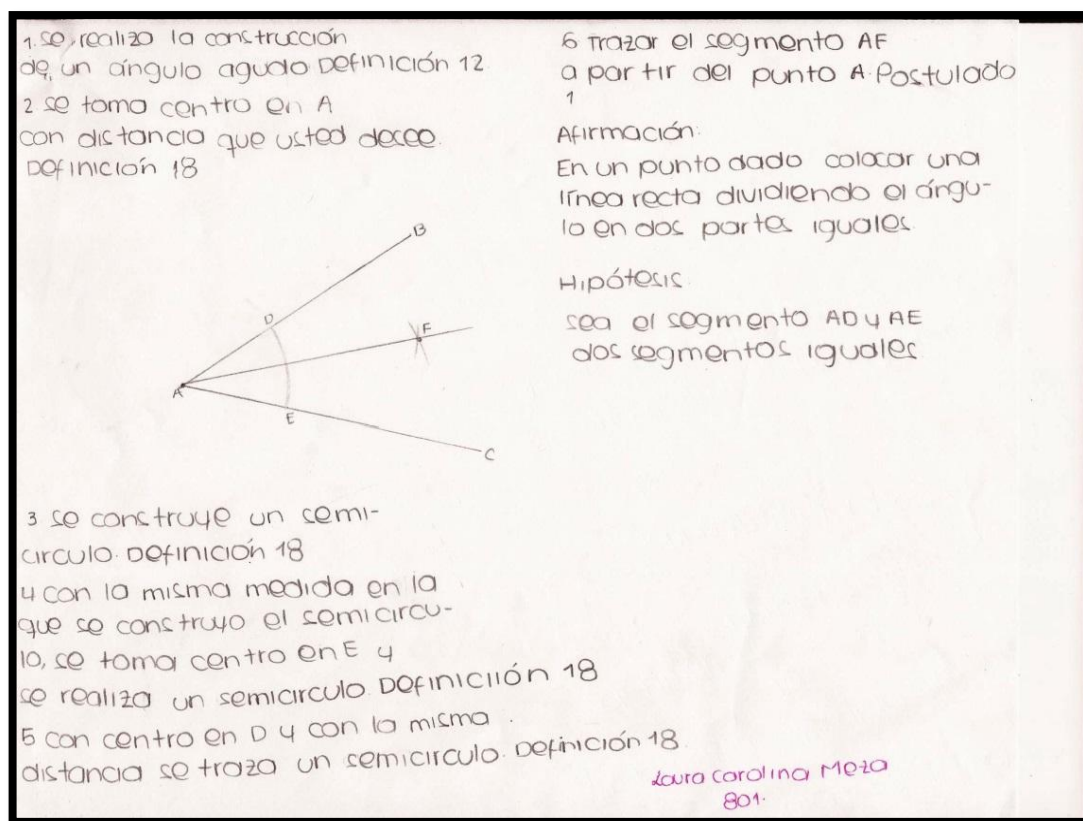 1. se realizo la construcción
de un ángulo agudo Definición 12
2 se toma centro en A
con distancia que usted desee.
Definición 18
B
D
F
A
E
C
3 se construye un semi-
circulo. Definición 18
4 con la misma medida en la
que se construyo el semicircu-
lo, se toma centro en E y
se realiza un semicirculo. Definiciión 18
5 con centro en D y con la misma
distancia se traza un semicirculo. Definición 18
6 Trazar el segmento AF
a partir del punto A. Postulado
1
Afirmación:
En un punto dado colocar una
línea recta dividiendo el ángu-
lo en dos partes iguales.
Hipótesis
sea el segmento AD y AE
dos segmentos iguales
Laura Carolina Meza
801.